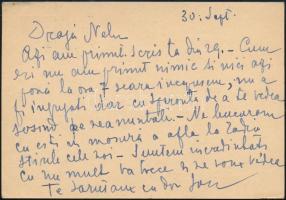 30. Sept.
Dragă Nelu
Azi am primit scrista din 29. - Cum
eri nu am primit nimic si nici azi
pană la ora 7 seara incepusem, nu a
fi ingrijati dar cu speranta de a te vedea
sosind pe neasteptate. - Ne bucuram
ca esti in măsură a afla la
stirile cele noi - Suntem incredintati
ca nu mult va trece si ne vom vedea
Te sarutam cu dor